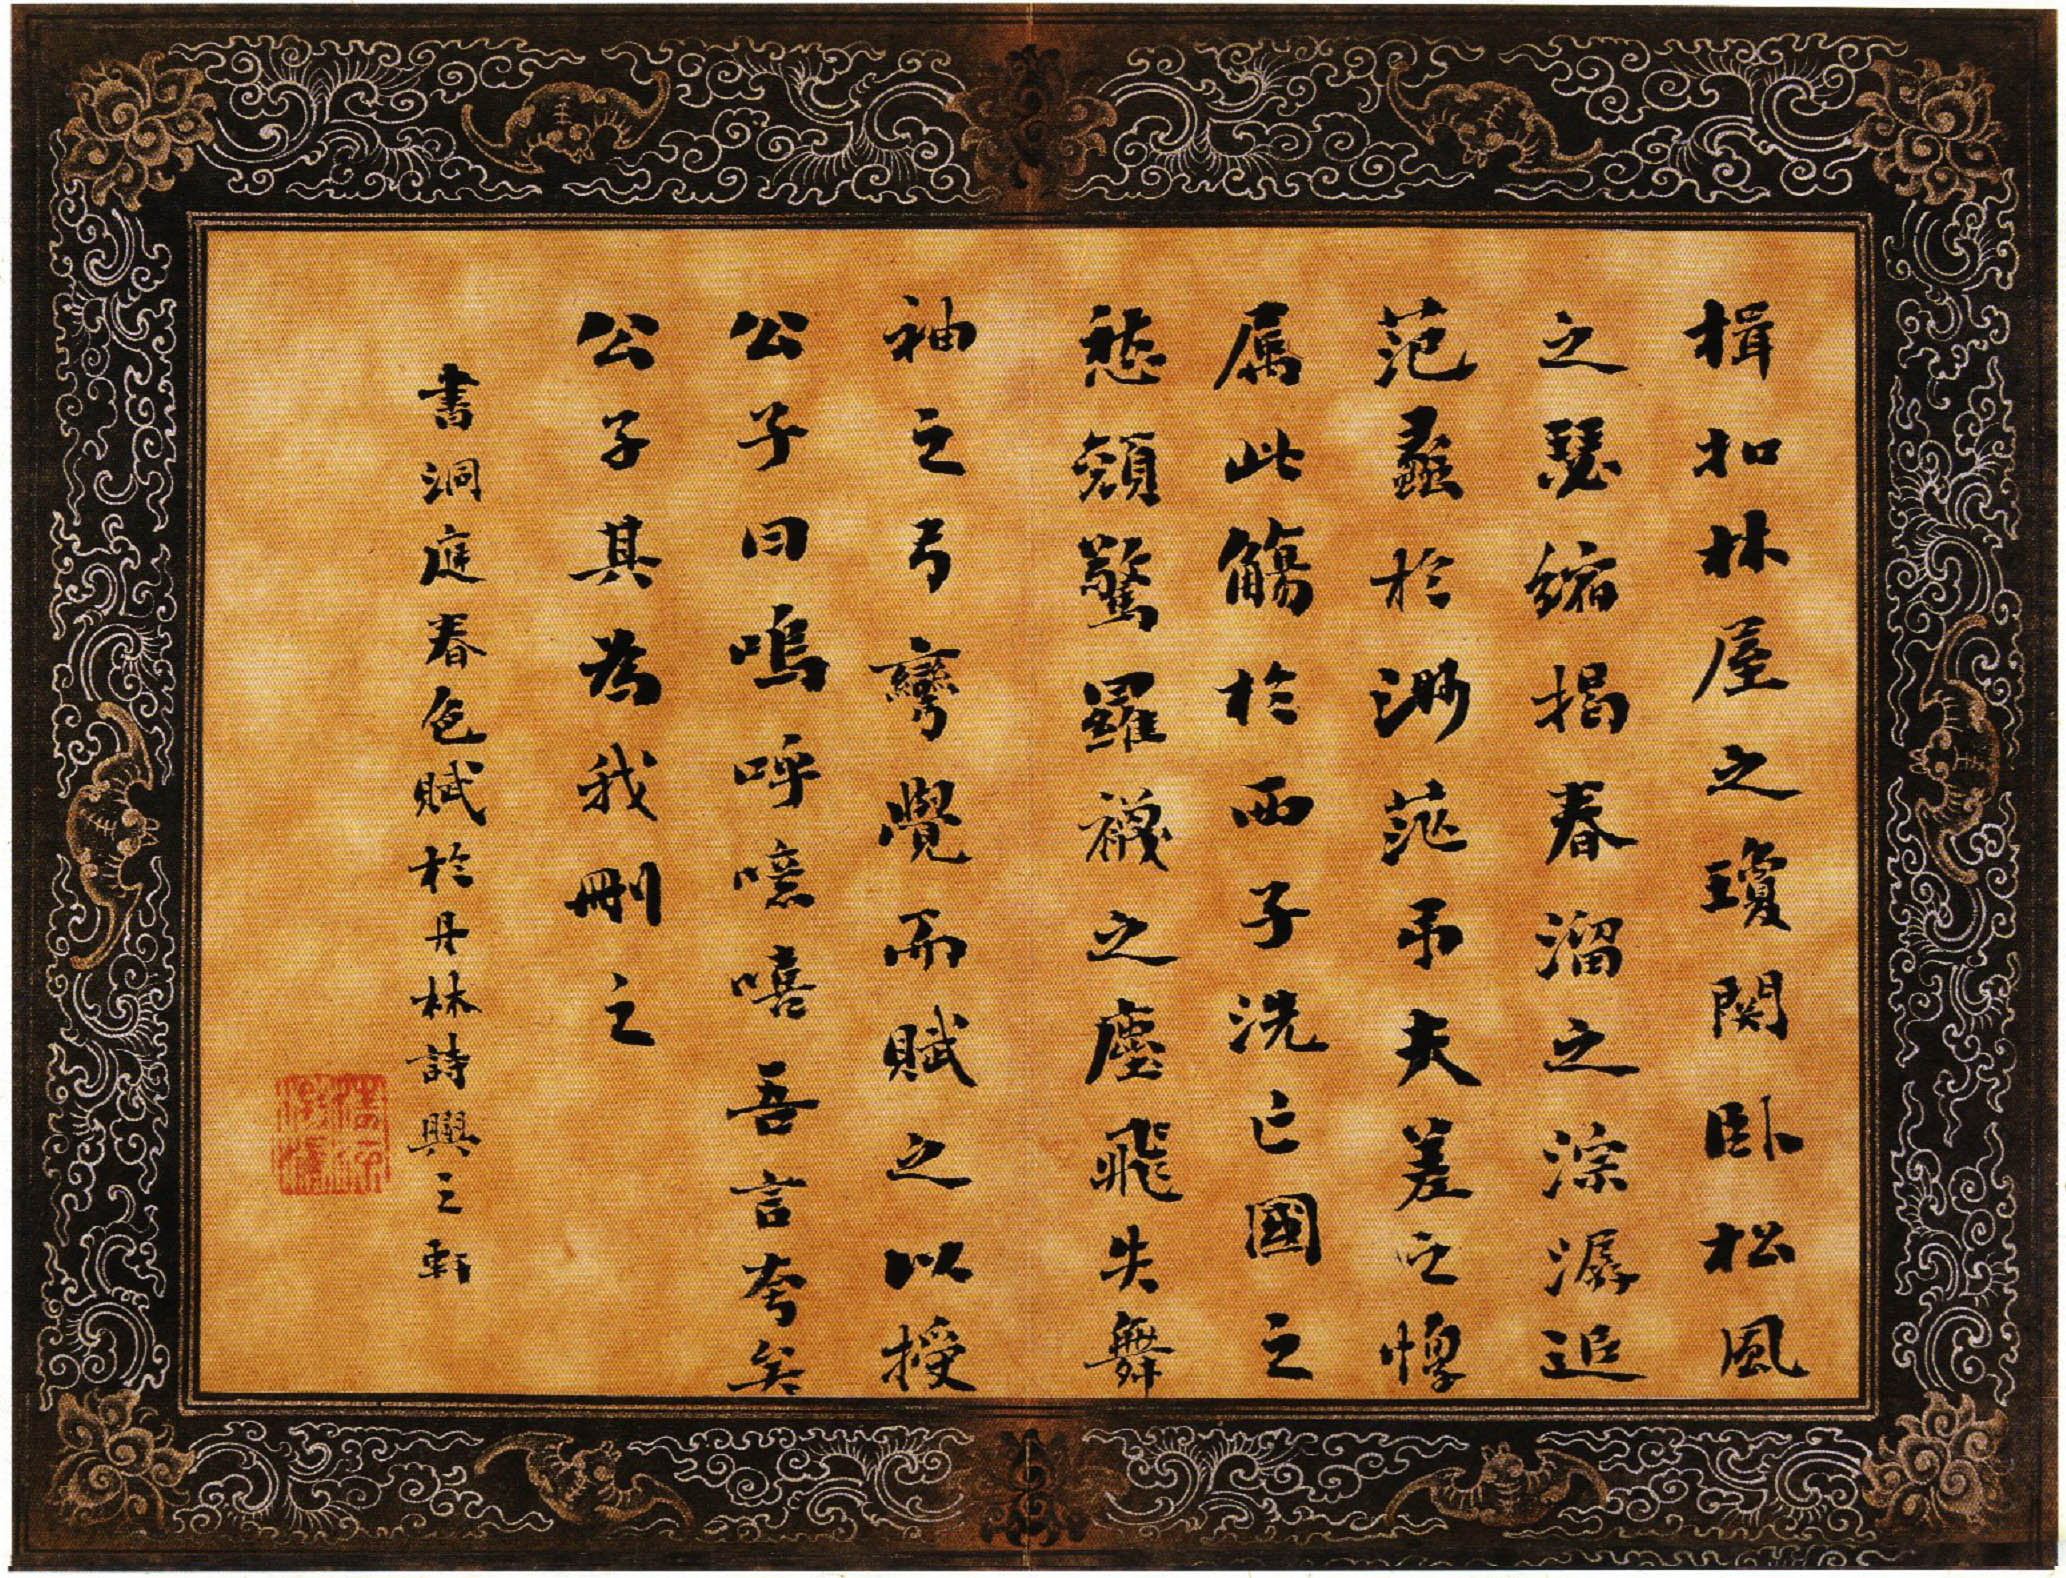 揖扣林屋之瓊関卧松風
之瑟縮揭春溜之淙潺追
范蠡於渺茫吊夫差之惸
属此觴於西子洗亡國之
愁顔驚羅襪之塵飛失舞
袖之弓彎覺而賦之以授
公子曰嗚呼噫嘻吾言夸矣
公子其為我刪之
書洞庭春色賦於丹林詩興之軒